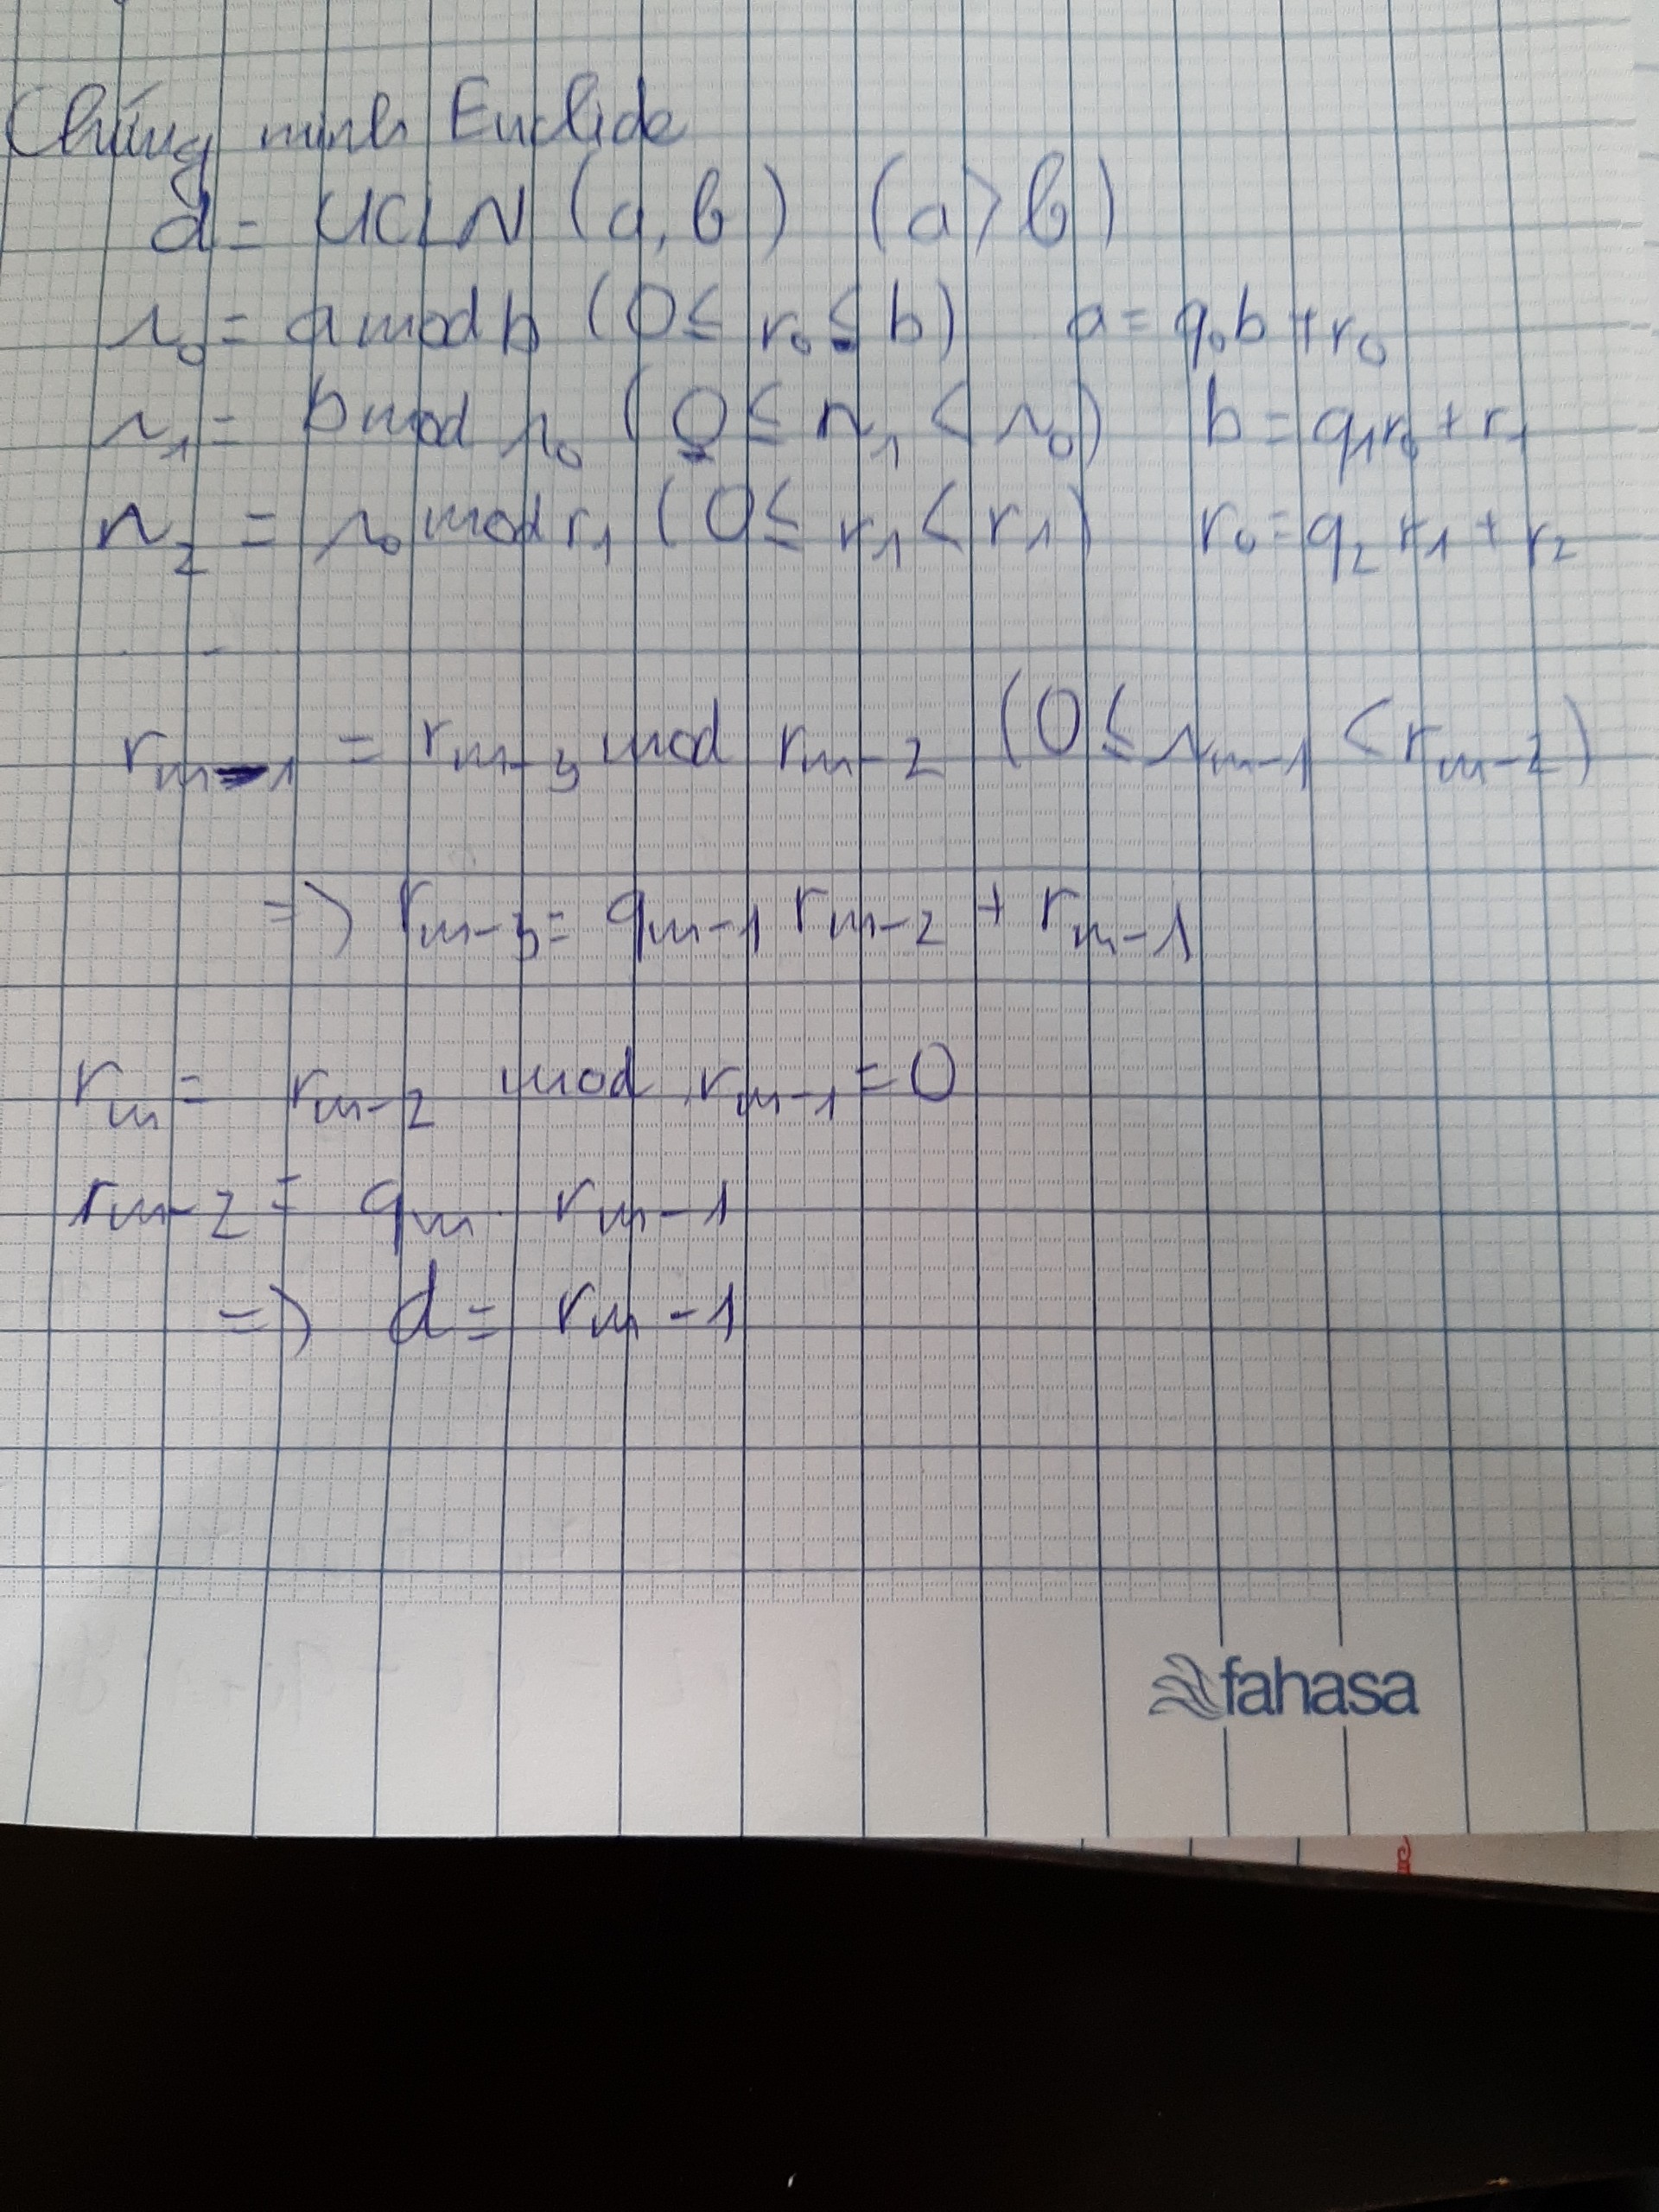 Chứng minh Euclide
d = UCLN (a, b) (a > b)
r₀ = a mod b (0 ≤ r₀ ≤ b) a = q₀b + r₀
r₁ = b mod r₀ (0 ≤ r₁ < r₀) b = q₁r₀ + r₁
r₂ = r₀ mod r₁ (0 ≤ r₁ < r₁) r₀ = q₂ r₁ + r₂
rₘ₋₁ = rₘ₋₃ mod rₘ₋₂ (0 ≤ rₘ₋₁ < rₘ₋₂)
=> rₘ₋₃ = qₘ₋₁ rₘ₋₂ + rₘ₋₁
rₘ = rₘ₋₂ mod rₘ₋₁ = 0
rₘ₋₂ = qₘ . rₘ₋₁
=> d = rₘ₋₁
fahasa